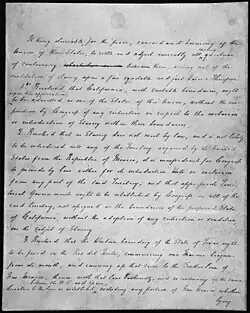 It being desirable for the peace, concord and harmony of the
Union of these States, to settle and adjust amicably all questions
of controversy between them, arising out of the
institution of slavery, upon a fair equitable and just basis: Therefore
1st Resolved, that California, with suitable boundaries, ought
to be admitted as one of the States of this Union, without the im-
position by Congress of any restriction in respect to the exclusion
or introduction of Slavery within those boundaries.
2. Resolved that as Slavery does not exist by law, and is not likely
to be introduced into any of the Territory acquired by the United
States from the Republic of Mexico, it is inexpedient for Congress
to provide by law either for its introduction into or exclusion
from any part of the said Territory; and that appropriate Terri-
torial Governments ought to be established by Congress in all of the
said Territory, not assigned as the boundaries of the proposed State
of California, without the adoption of any restriction or condition
on the subject of Slavery
3. Resolved that the Western boundary of the State of Texas ought
to be fixed on the Rio del Norte, commencing one marine league
from its mouth, and running up that river to the Southern line of
New Mexico, thence with that line Eastwardly, and so continuing in the same
direction to the line as established between the U.S. and Spain, excluding any portion of New Mexico whether
lying